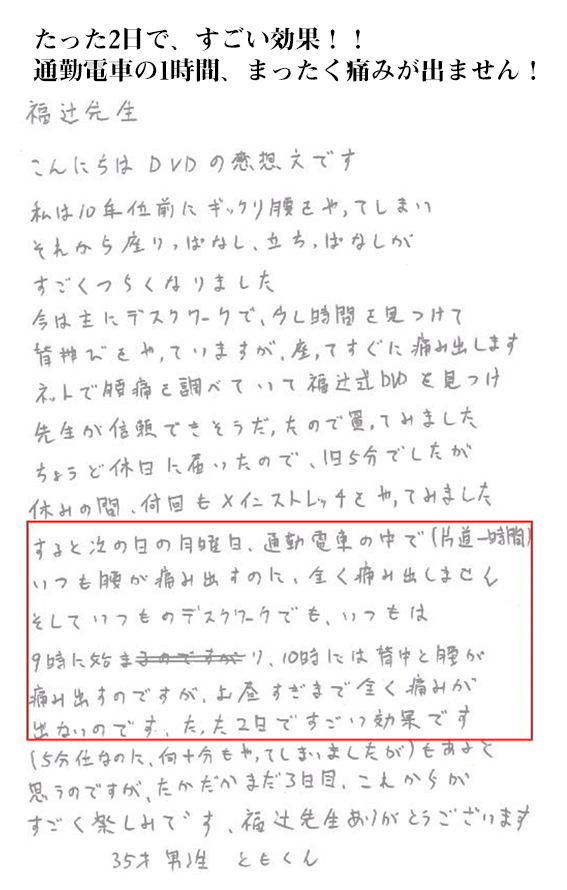 たった2日で、すごい効果！！
通勤電車の1時間、まったく痛みが出ません！
福辻先生
こんにちは DVDの感想文です
私は10年位前にギックリ腰をやってしまい
それから座りっぱなし、立ちっぱなしが
すごくつらくなりました
今は主にデスクワークで、少し時間を見つけて
背伸びをやっていますが、座ってすぐに痛み出します
ネットで腰痛を調べていて福辻式DVDを見つけ
先生が信頼できそうだったので買ってみました
ちょうど休日に届いたので、1日5分でしたが
休みの間、何回もメインストレッチをやってみました
すると次の日の月曜日、通勤電車の中で(片道一時間)
いつも腰が痛み出すのに、全く痛み出しません
そしていつものデスクワークでも、いつもは
9時に始まるのですがり、10時には背中と腰が
痛み出すのですが、お昼すぎまで全く痛みが
出ないのです、たった2日ですごい効果です
(5分位なのに、何十分もやってしまいましたが)もあると
思うのですが、たかだかまだ3日目、これからが
すごく楽しみです、福辻先生ありがとうございます
35才 男性 ともくん